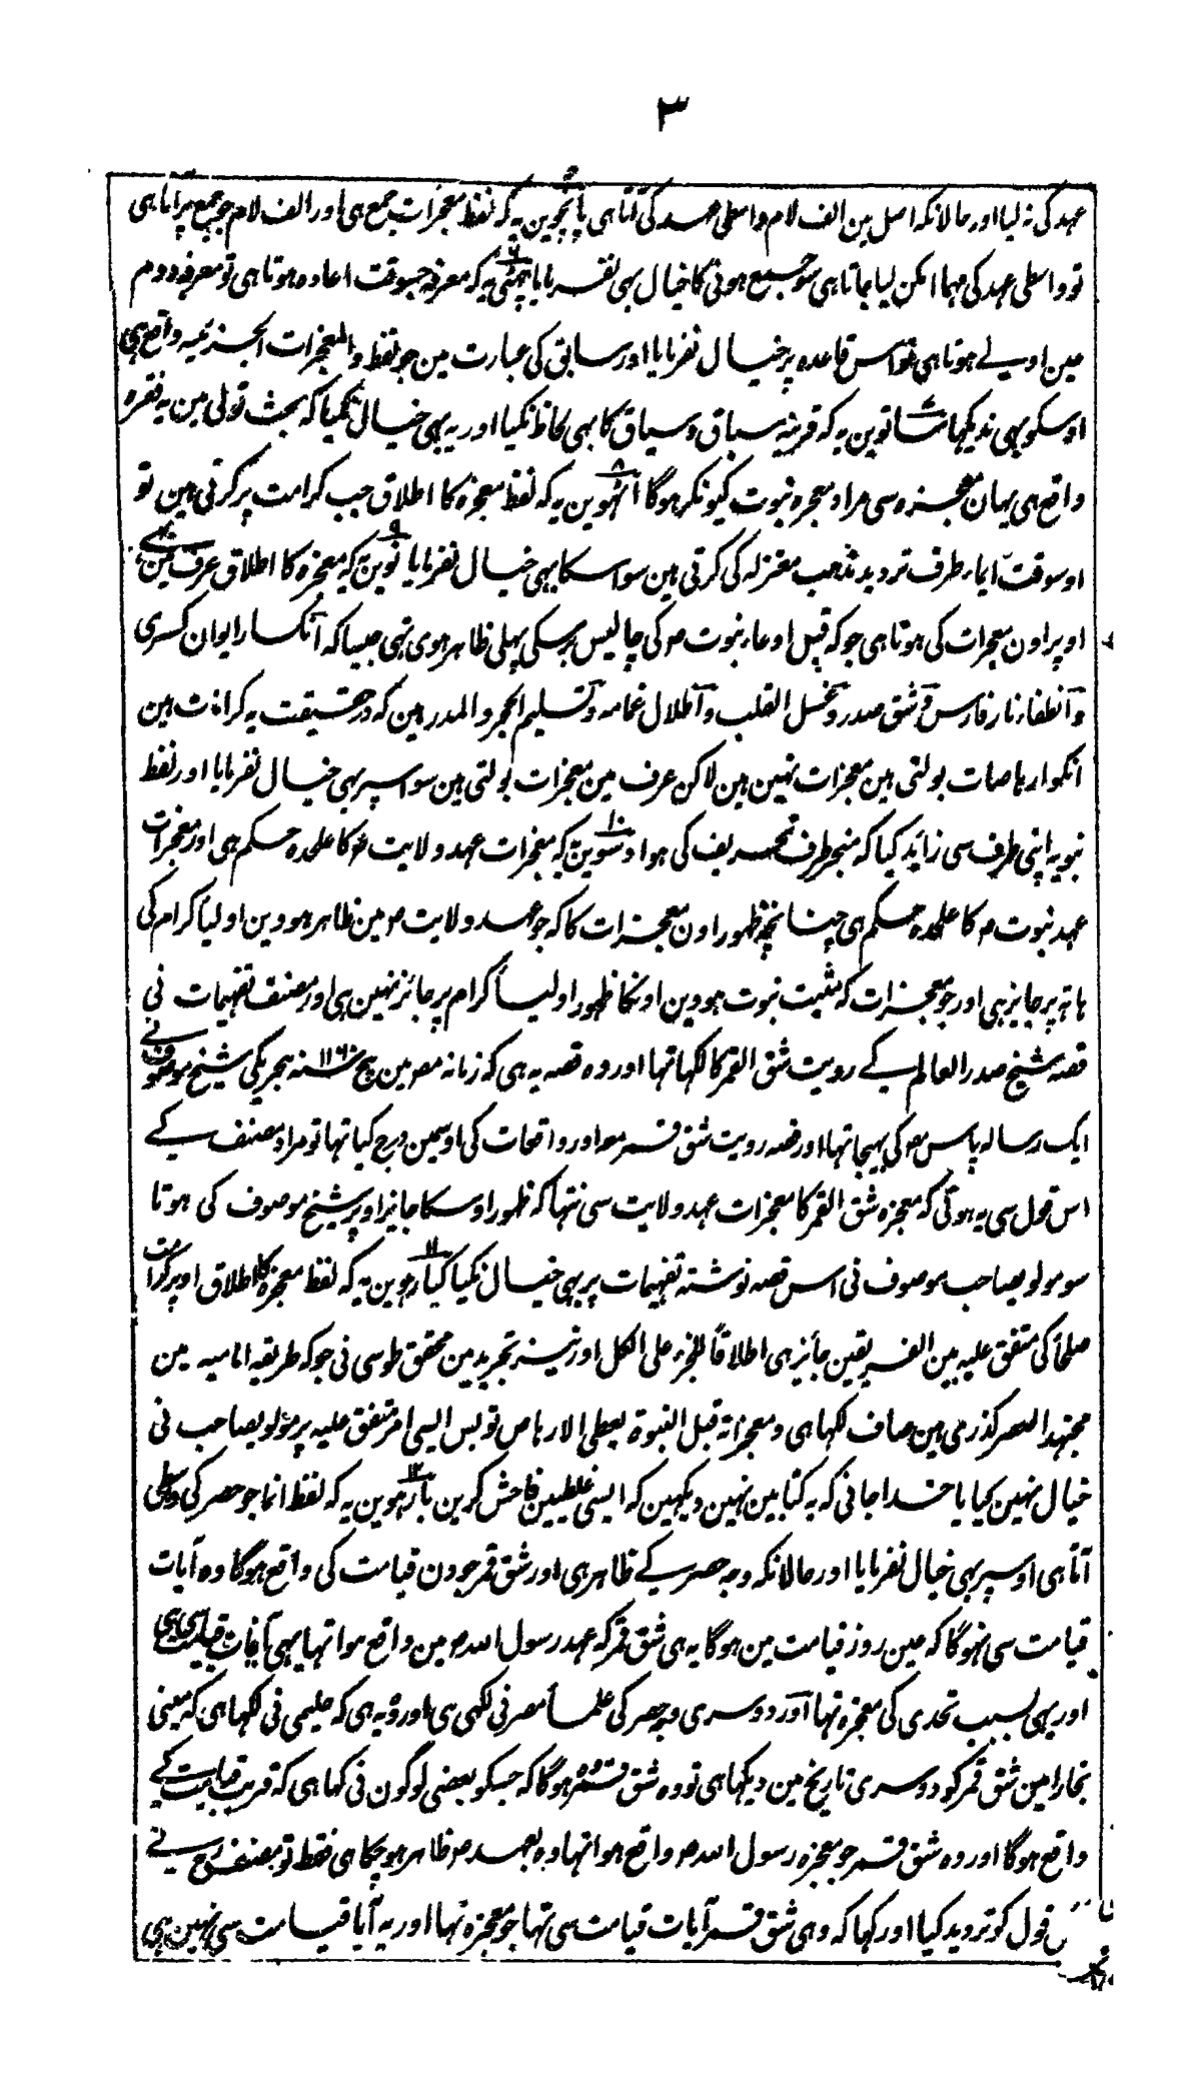 ۳
عہد کی نہ لیا اور حالانکہ اصل مین الف لام واسطی عہد کی آتا ہی پانچوین یہ کہ لفظ معجزات جمع ہی اور الف لام جو جمع پر آتا ہی
تو واسطی عہد کی مہما امکن لیا جاتا ہی سو جمیع ہونی کا خیال بہی نفرمایا چہٹی یہ کہ معرفہ جسوقت اعادہ ہوتا ہی تو معرفہ دوم
عین اولے ہوتا ہی تو اس قاعدہ پر خیال نفرمایا اور سابق کی عبارت مین جو لفظ والمعجزات الجزئیہ واقع ہی
اوسکو بہی ندیکہا ساتوین یہ کہ قرینہ سباق و سیاق کا بہی لحاظ نکیا اور یہ بہی خیال نکیا کہ بحث تولی مین یہ فقرہ
واقع ہی یہان معجزہ سی مراد معجزہ نبوت کیونکر ہوگا ۸ آٹہوین یہ کہ لفظ معجزہ کا اطلاق جب کرامت پر کرتی ہین تو
اوسوقت ایماء طرف تردید مذہب معتزلہ کی کرتی ہین سو اسکا بہی خیال نفرمایا ۹ نوین یہ کہ معجزہ کا اطلاق عرف مین بہی
اوپر اون معجزات کی ہوتا ہی جو کہ قبل ادعاء نبوت ص کی چالیس برسکی پہلی ظاہر ہوی تہی جیسا کہ انکسار ایوان کسری
و انطفاء نار فارس و شق صدر و غسل القلب و اظلال غمامہ و تسلیم الحجر والمدر ہین کہ درحقیقت یہ کرامات ہین
انکو ارہاصات بولتی ہین معجزات نہین ہین لاکن عرف مین معجزات بولتی ہین سو اسپر بہی خیال نفرمایا اور لفظ
نبویہ اپنی طرف سی زاید کیا کہ منجر طرف تحریف کی ہوا ۱۰ دسوین یہ کہ معجزات عہد ولایت ص کا علحدہ حکم ہی اور معجزات
عہد نبوت ص کا علحدہ حکم ہی چنانچہ ظہور اون معجزات کا کہ جو عہد ولایت ص مین ظاہر ہووین اولیا کرام کی
ہاتہ پر جایز ہی اور جو معجزات کہ مثبت نبوت ہووین اونکا ظہور اولیا کرام پر جائز نہین ہی اور مصنف تفہیمات نی
قصہ شیخ صدر العالم کے رویت شق القمر کا لکہا تہا اور وہ قصہ یہ ہی کہ زمانہ مص مین بیچ سنہ ۱۱۶۰ ہجریکی شیخ موصوف نے
ایک رسالہ پاس مص کی بہیجا تہا اور قصہ رویت شق قمر مع اور واقعات کی اوسمین درج کیا تہا تو مراد مصنف کے
اس قول سی یہ ہوتی کہ معجزہ شق القمر کا معجزات عہد ولایت سی نتہا کہ ظہور اوسکا جایز اوپر شیخ موصوف کی ہوتا
سو مولویصاحب موصوف نی اس قصہ نوشتہ تفہیمات پر بہی خیال نکیا ۱۱ گیارہوین یہ کہ لفظ معجزہ کا اطلاق اوپر کرامت
صلحا کی متفق علیہ بین الفریقین جائز ہی اطلاقاً للجزء علی الکل اور نیز تجرید مین محقق طوسی نی جو کہ طریقہ امامیہ مین
مجتہد العصر گذری ہین صاف لکہا ہی و معجزاتہ قبل النبوۃ یعطی الارہاص تو بس ایسی امر متفق علیہ پر مولویصاحب نی
خیال نہین کیا یا خدا جانی کہ یہ کتابین نہین دیکہین کہ ایسی غلطیین فاحش کرین ۱۲ بارہوین یہ کہ لفظ انما جو حصر کی واسطی
آتا ہی اوسپر بہی خیال نفرمایا اور حالانکہ وجہ حصر کے ظاہر ہی اور شق قمر جو دن قیامت کی واقع ہوگا وہ آیات
قیامت سی نہوگا کہ عین روز قیامت مین ہوگا یہ ہی شق قمر کہ عہد رسول اللہ ص مین واقع ہوا تہا یہی آیات قیامت سی ہی
اور یہی بسبب تحدی کی معجزہ نہا اور دوسری وجہ حصر کی علماء مصر نی لکہی ہی اور وہ یہ ہی کہ حلیمی نی لکہا ہی کہ مینی
بخارا مین شق قمر کو دوسری تاریخ مین دیکہا ہی تو وہ شق قمر ہوگا کہ جسکو بعضی لوگون نی کہا ہی کہ قریب قیامت کے
واقع ہوگا اور وہ شق قمر جو معجزہ رسول اللہ ص واقع ہوا تہا وہ بعہد ص ظاہر ہو چکا ہی فقط تو مصنف رح نے
س قول کو تردید کیا اور کہا کہ وہی شق قمر آیات قیامت سی تہا جو معجزہ تہا اور یہ آیا قیامت سی نہین ہی